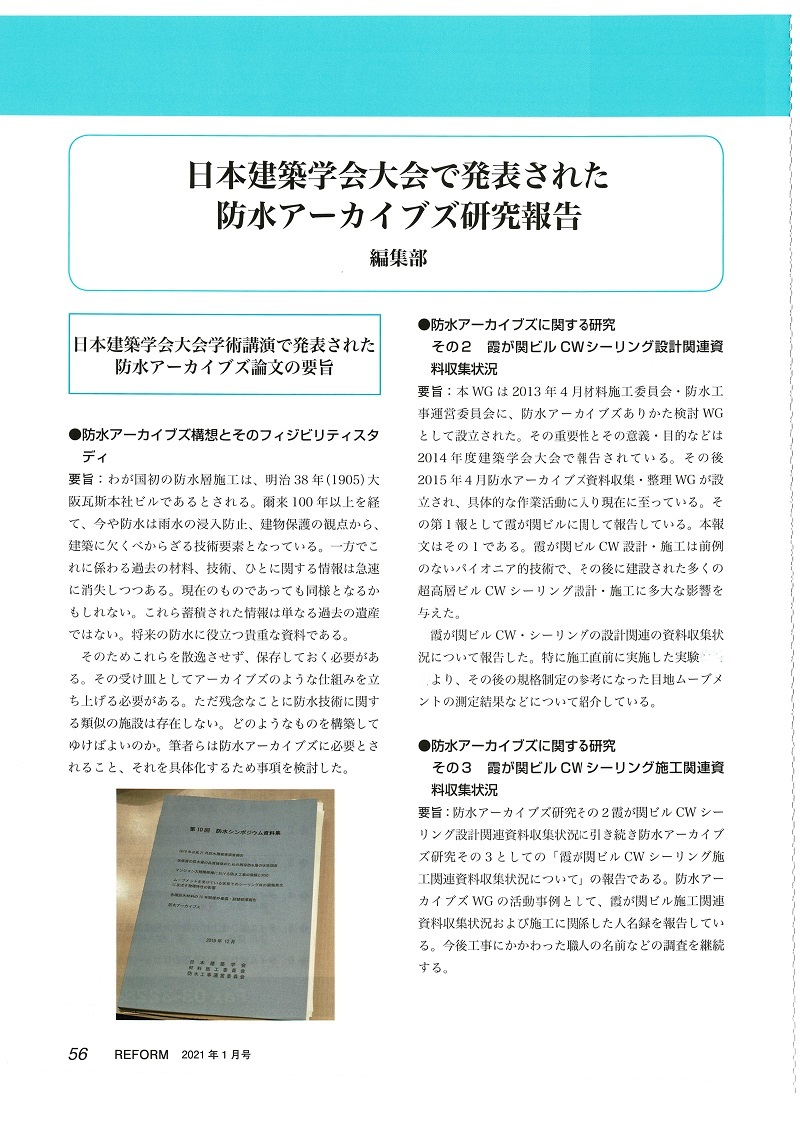 日本建築学会大会で発表された
防水アーカイブズ研究報告
編集部
日本建築学会大会学術講演で発表された
防水アーカイブズ論文の要旨
●防水アーカイブズ構想とそのフィジビリティスタ
ディ
要旨：わが国初の防水層施工は、明治38年(1905)大
阪瓦斯本社ビルであるとされる。爾来100年以上を経
て、今や防水は雨水の浸入防止、建物保護の観点から、
建築に欠くべからざる技術要素となっている。一方でこ
れに係わる過去の材料、技術、ひとに関する情報は急速
に消失しつつある。現在のものであっても同様となるか
もしれない。これら蓄積された情報は単なる過去の遺産
ではない。将来の防水に役立つ貴重な資料である。
そのためこれらを散逸させず、保存しておく必要があ
る。その受け皿としてアーカイブズのような仕組みを立
ち上げる必要がある。ただ残念なことに防水技術に関す
る類似の施設は存在しない。どのようなものを構築して
ゆけばよいのか。筆者らは防水アーカイブズに必要とさ
れること、それを具体化するため事項を検討した。
第10回 防水シンポジウム資料集
防水アーカイブズ
2019年12月
日本建築学会
材料施工委員会
防水工事運営委員会
●防水アーカイブズに関する研究
その2 霞が関ビルCWシーリング設計関連資
料収集状況
要旨：本WGは2013年4月材料施工委員会・防水工
事運営委員会に、防水アーカイブズありかた検討WG
として設立された。その重要性とその意義・目的などは
2014年度建築学会大会で報告されている。その後
2015年4月防水アーカイブズ資料収集・整理WGが設
立され、具体的な作業活動に入り現在に至っている。そ
の第1報として霞が関ビルに関して報告している。本報
文はその1である。霞が関ビルCW設計・施工は前例
のないパイオニア的技術で、その後に建設された多くの
超高層ビルCWシーリング設計・施工に多大な影響を
与えた。
霞が関ビルCW・シーリングの設計関連の資料収集状
況について報告した。特に施工直前に実施した実験
より、その後の規格制定の参考になった目地ムーブメ
ントの測定結果などについて紹介している。
●防水アーカイブズに関する研究
その3 霞が関ビルCWシーリング施工関連資
料収集状況
要旨：防水アーカイブズ研究その2霞が関ビルCWシー
リング設計関連資料収集状況に引き続き防水アーカイブ
ズ研究その3としての「霞が関ビルCWシーリング施
工関連資料収集状況について」の報告である。防水アー
カイブズWGの活動事例として、霞が関ビル施工関連
資料収集状況および施工に関係した人名録を報告してい
る。今後工事にかかわった職人の名前などの調査を継続
する。
56 REFORM 2021年1月号